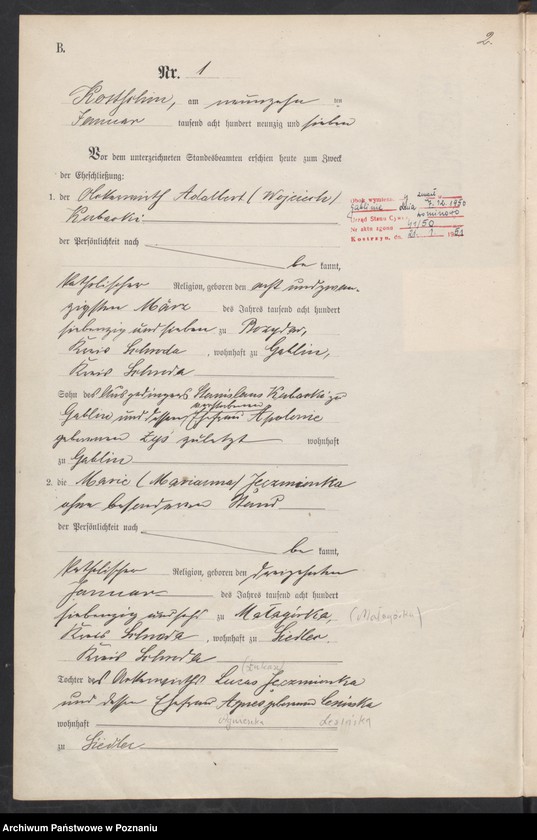 B.
2.
Nr. 1
Kostschin, am neunzehn ten
Januar tausend acht hundert neunzig und sieben
Vor dem unterzeichneten Standesbeamten erschien heute zum Zweck
der Eheschließung:
1. der Ackerwirth Adalbert (Wojciech)
Kubacki
der Persönlichkeit nach
be kannt,
katholischer Religion, geboren den acht und zwan-
zigsten März des Jahres tausend acht hundert
siebenzig und sieben zu
Kreis Schroda, wohnhaft zu Gablin,
Kreis Schroda
Sohn des Ausgedingers Stanislaus Kubacki zu
Gablin und dessen verstorbenen Ehefrau Apolonie
geborenen Zys zuletzt wohnhaft
zu Gablin
2. die Marie (Marianna) Jeczmionka
ohne besonderen Stand
der Persönlichkeit nach
be kannt,
katholischer Religion, geboren den dreizehnten
Januar des Jahres tausend acht hundert
siebenzig und sechs zu Małagórka, (Małagórka)
Kreis Schroda, wohnhaft zu Siedlec
Kreis Schroda
(Łukasz)
Tochter des Ackerwirths Lucas Jeczmionka
und dessen Ehefrau Agnes geborenen Lesinska
wohnhaft Agnieszka Lesińska
zu Siedlec
Obok wymien. zmarł
dnia 7.12.1950
Urząd Stanu Cywil.
Nr aktu zgonu 41/50
Kostrzyn, dn. 21. 1 1951
Archiwum Państwowe w Poznaniu